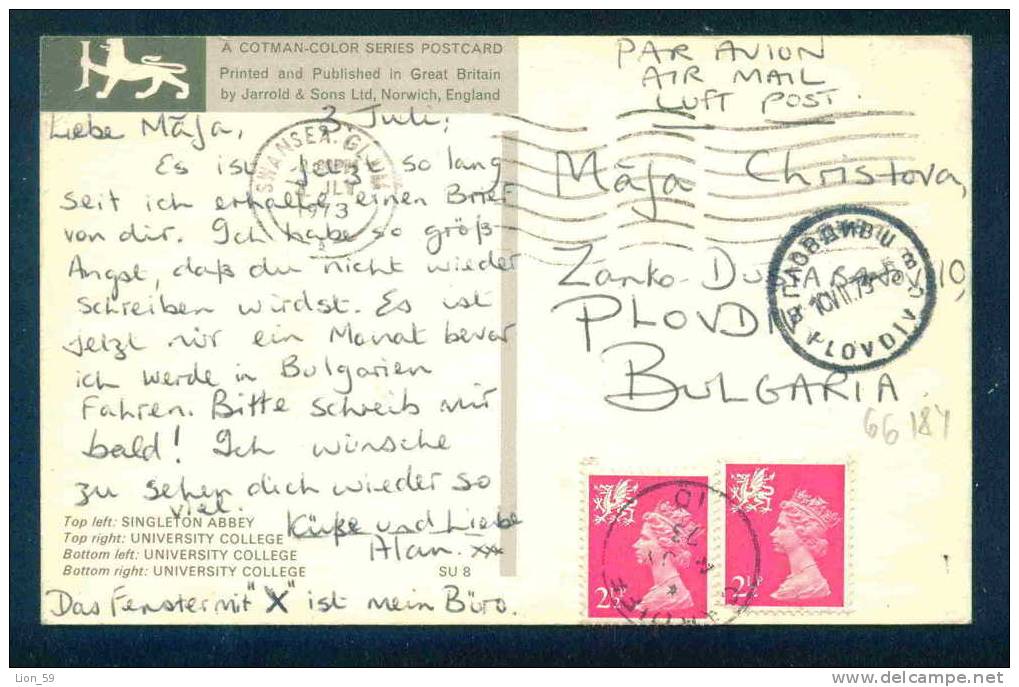 A COTMAN-COLOR SERIES POSTCARD
Printed and Published in Great Britain
by Jarrold & Sons Ltd, Norwich, England
Liebe Māja, 3 Juli,
Es ist jetzt so lang
seit ich erhalte einen Brief
von dir. Ich habe so größ
Angst, daß du nicht wieder
schreiben wirdst. Es ist
jetzt nür ein Monat bevor
ich werde in Bulgarien
Fahren. Bitte schreib mir
bald! Ich wünsche
zu sehen dich wieder so
viel.
Küße und Liebe
Alan. xxx
Top left: SINGLETON ABBEY
Top right: UNIVERSITY COLLEGE
Bottom left: UNIVERSITY COLLEGE
Bottom right: UNIVERSITY COLLEGE
SU 8
Das Fenster mit "X" ist mein Büro.
PAR AVION
AIR MAIL
LUFT POST.
Māja Christova,
Zanko 10,
PLOVDIV
BULGARIA.
SWANSEA. GLAM
JLY
1973
ПЛОВДИВ
10VII73
PLOVDIV
66184
2½P
2½P
4 JY
73
Lion_59